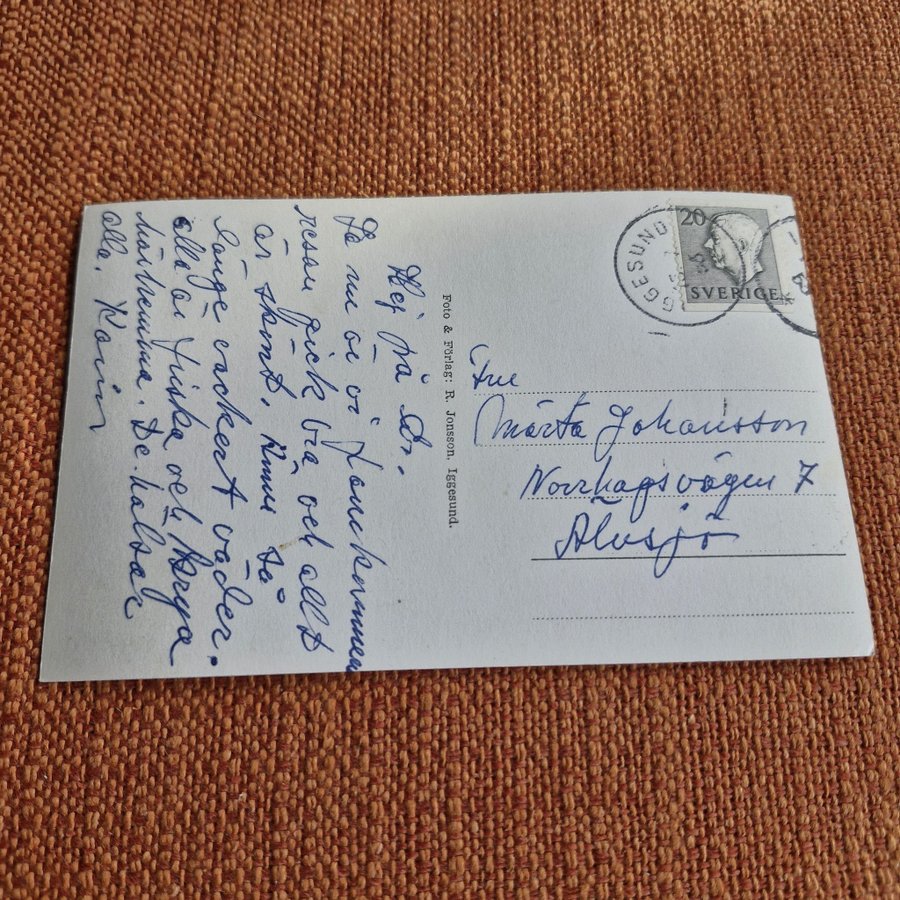 Hej på Er.
Ja nu är vi framkommen
resan gick bra och allt
är skönt. Ännu så
länge vackert väder.
alla är friska och krya
härhemma. De hälsar
alla. Karin
Foto & Förlag: R. Jonsson, Iggesund.
IGGESUND
20
SVERIGE
Fru
Märta Johansson
Norrhagsvägen 7
Älvsjö